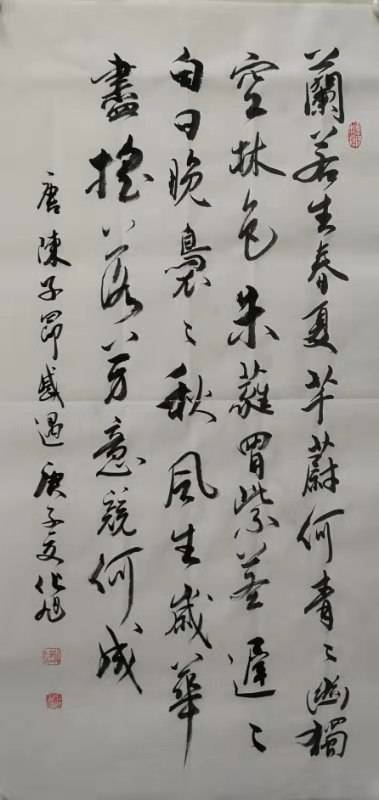 蘭若生春夏芊蔚何青〻幽獨
空林色朱蕤冒紫莖遲〻
白日晚裊〻秋風生歲華
盡搖落芳意競何成
唐陳子昂感遇庚子文化旭